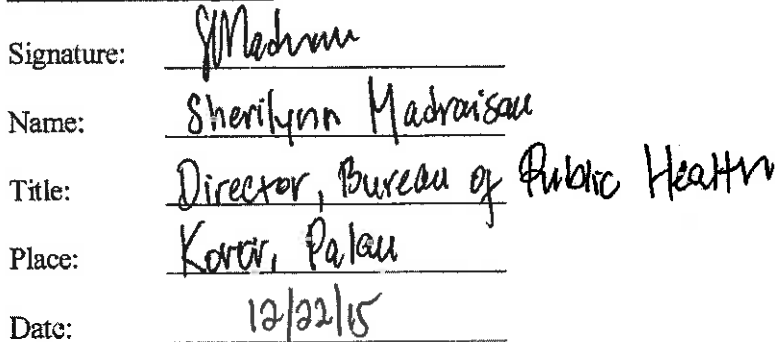 Signature: SMadraisau
Name: Sherilynn Madraisau
Title: Director, Bureau of Public Health
Place: Koror, Palau
Date: 12/22/15